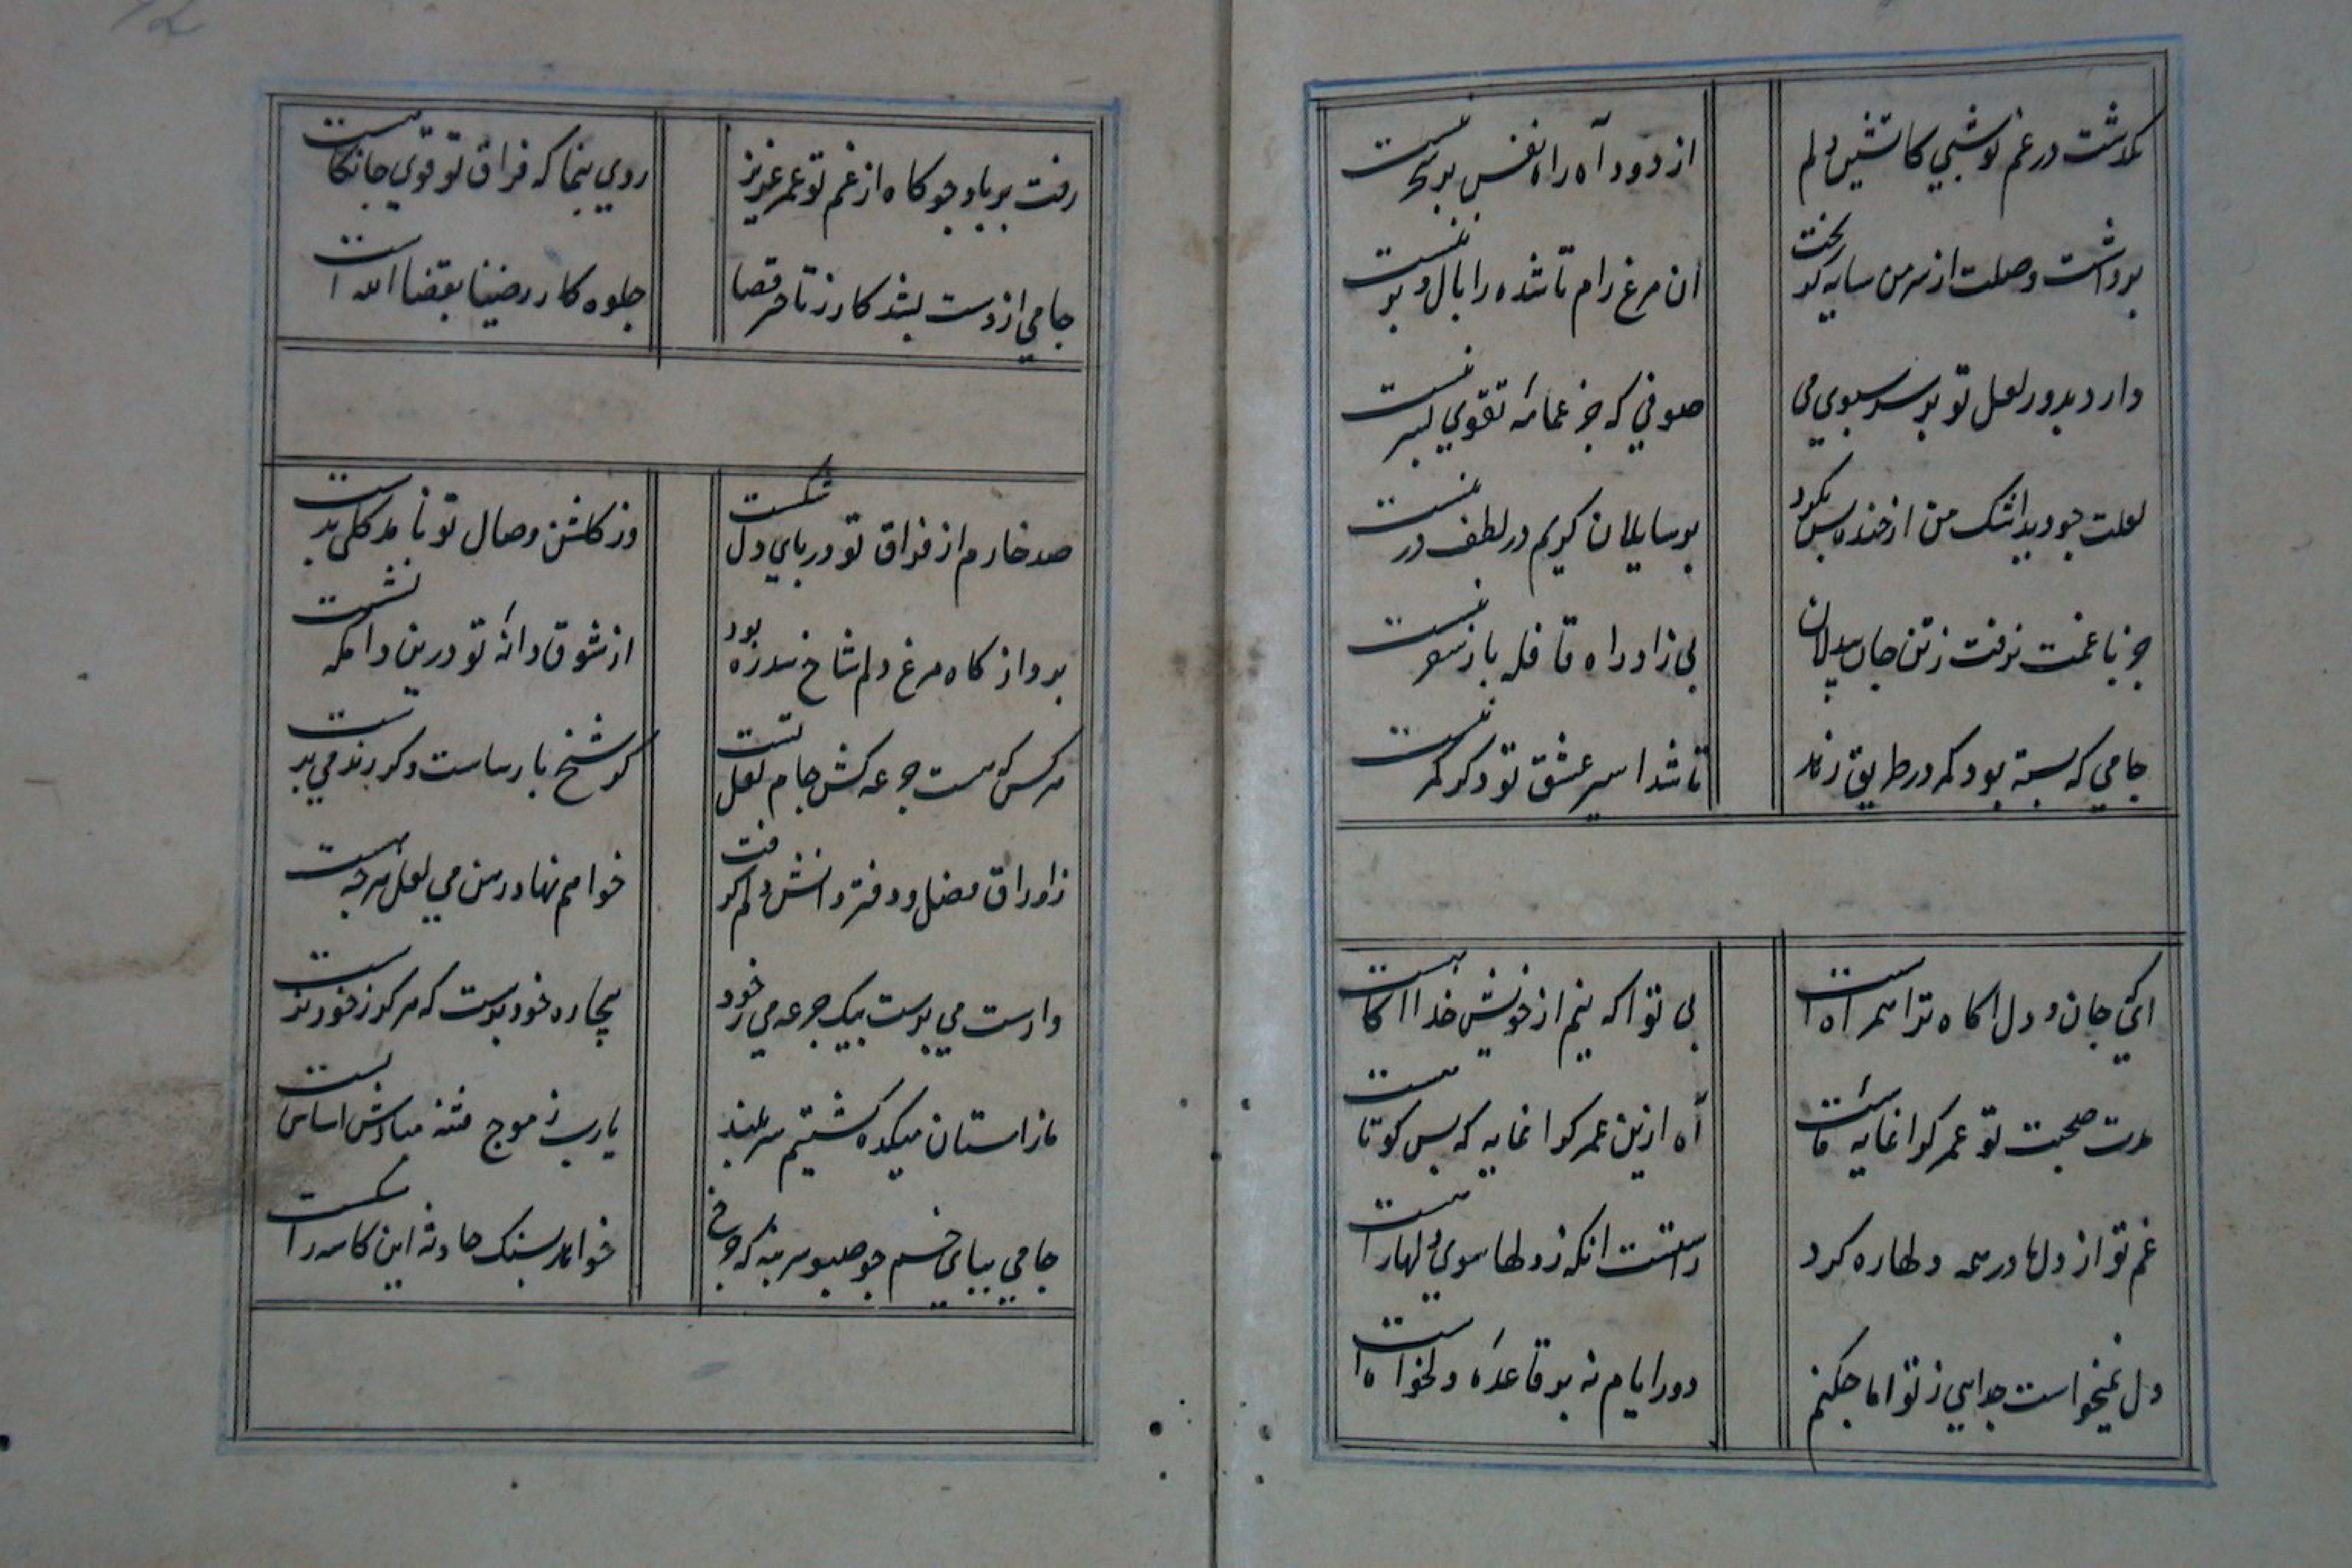 نگذشت در غم تو شبی کاتشین دلم
از دود آه راه نفس بر سحر نبست
برداشت وصلت از سر من سایه کو بخت
ان مرغ رام ناشده را بال و پر نبست
دارد بدور لعل تو بر سر سبوی می
صوفی که جز عمامهٔ تقوی بسر نبست
لعلت چو دید اشک من از خنده بس نکرد
بر سایلان کریم در لطف در نبست
جز با غمت نرفت ز تن جان بیدلان
بی زاد راه قافله بار سفر نبست
جامی که بسته بود کمر در طریق زهد
تا شد اسیر عشق تو دکر کمر نبست
ای که جان و دل اکاه ترا همراه است
بی تو اکه نیم از خویش خدا اکاهست
مدت صحبت تو عمر کرانمایه ماست
آه ازین عمر کرانمایه که بس کوتاهست
غم تو از دل ما در همه دلها ره کرد
راستست انکه ز دلها سوی دلها راهست
دل نمیخواست جدایی ز تو اما چکنم
دور ایام نه بر قاعدهٔ دلخواه است
رفت بر باد چو کاه از غم تو عمر عزیز
روی بنما که فراق تو قوی جانکاهست
جامی از دست بشد کار ز تاخر قضا
جلوه کار رضینا بقضا الله است
صد خارم از فراق تو در پای دل شکست
وز کلشن وصال تو نامد کلی بدست
پرواز کاه مرغ دلم شاخ سدره بود
از شوق دانهٔ تو درین دامکه نشست
هر کس که هست جرعه کش جام لعل تست
کر شیخ پارساست و کر رند می پرست
ز اوراق فضل و دفتر دانش دلم گرفت
خواهم نهاد رهن می لعل هر چه هست
وارست می پرست بیک جرعه می ز خود
بیچاره خودپرست که هرکز ز خود نرست
ما ز استان میکده کشتیم سر بلند
یا رب ز موج فتنه مبادش اساس پست
جامی بپای خم چو صبو سر بنه که چرخ
خواهد بسنک حادثه این کاسه را شکست